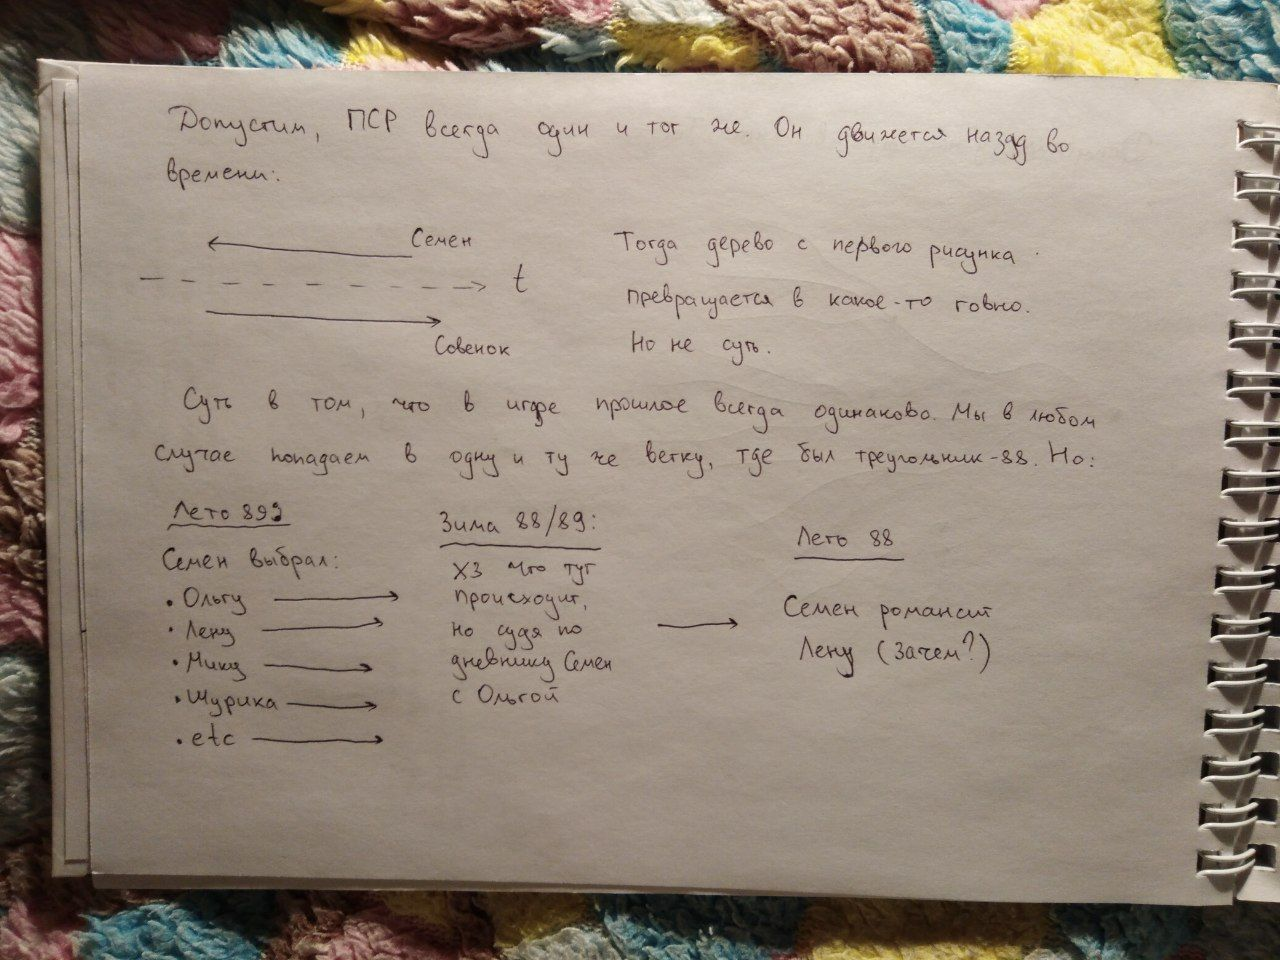 Допустим, ПСР всегда один и тот же. Он движется назад во
времени:
Семен
t
Совенок
Тогда дерево с первого рисунка
превращается в какое-то говно.
Но не суть.
Суть в том, что в игре прошлое всегда одинаково. Мы в любом
случае попадаем в одну и ту же ветку, где был треугольник-88. Но:
Лето 89
Семен выбрал:
• Ольгу
• Лену
• Мику
• Шурика
• etc
Зима 88/89:
ХЗ что тут
происходит,
но судя по
дневнику Семен
с Ольгой
Лето 88
Семен романсит
Лену (Зачем?)